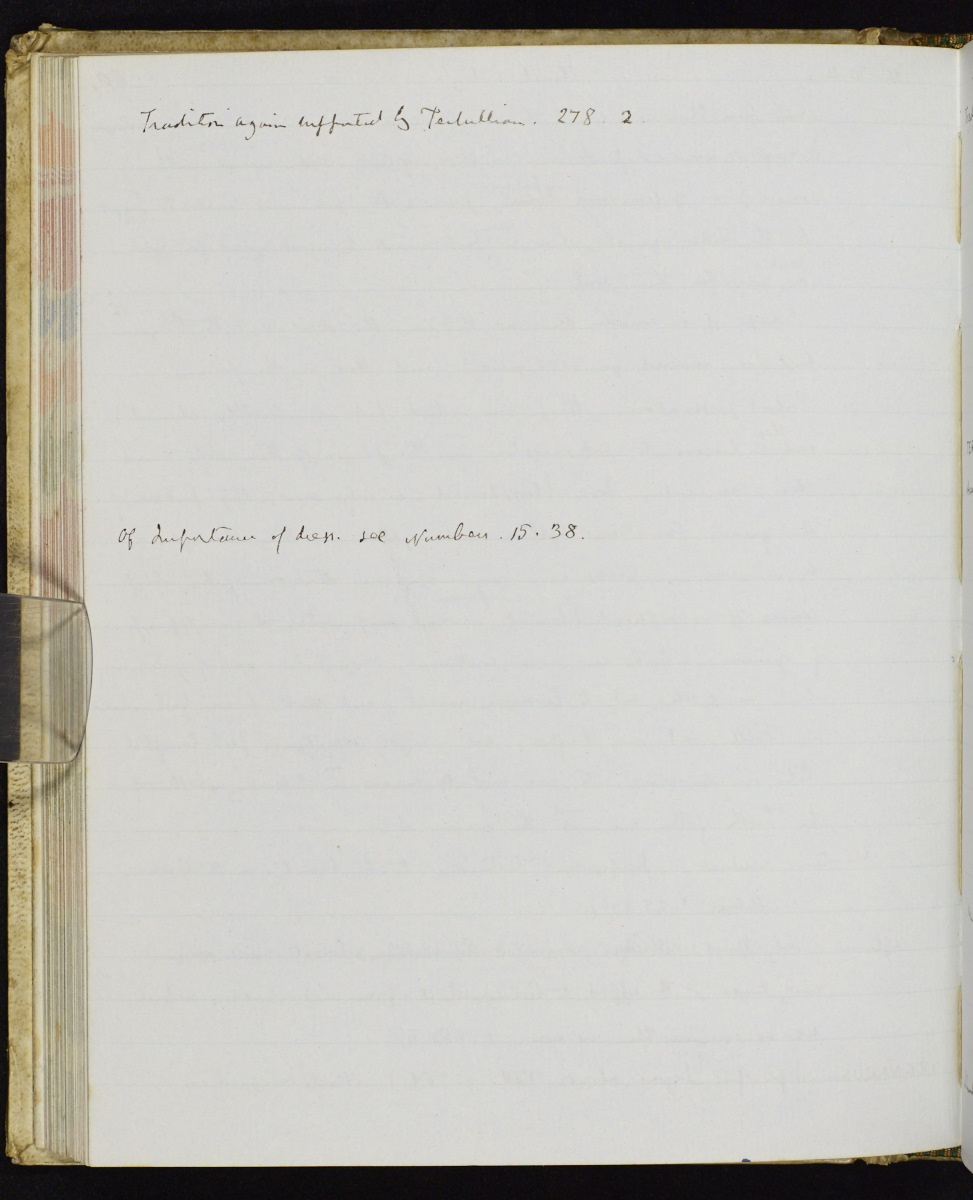 Tradition again supported by Tertullian. 278. 2.
Of Importance of dress. see Numbers. 15. 38.